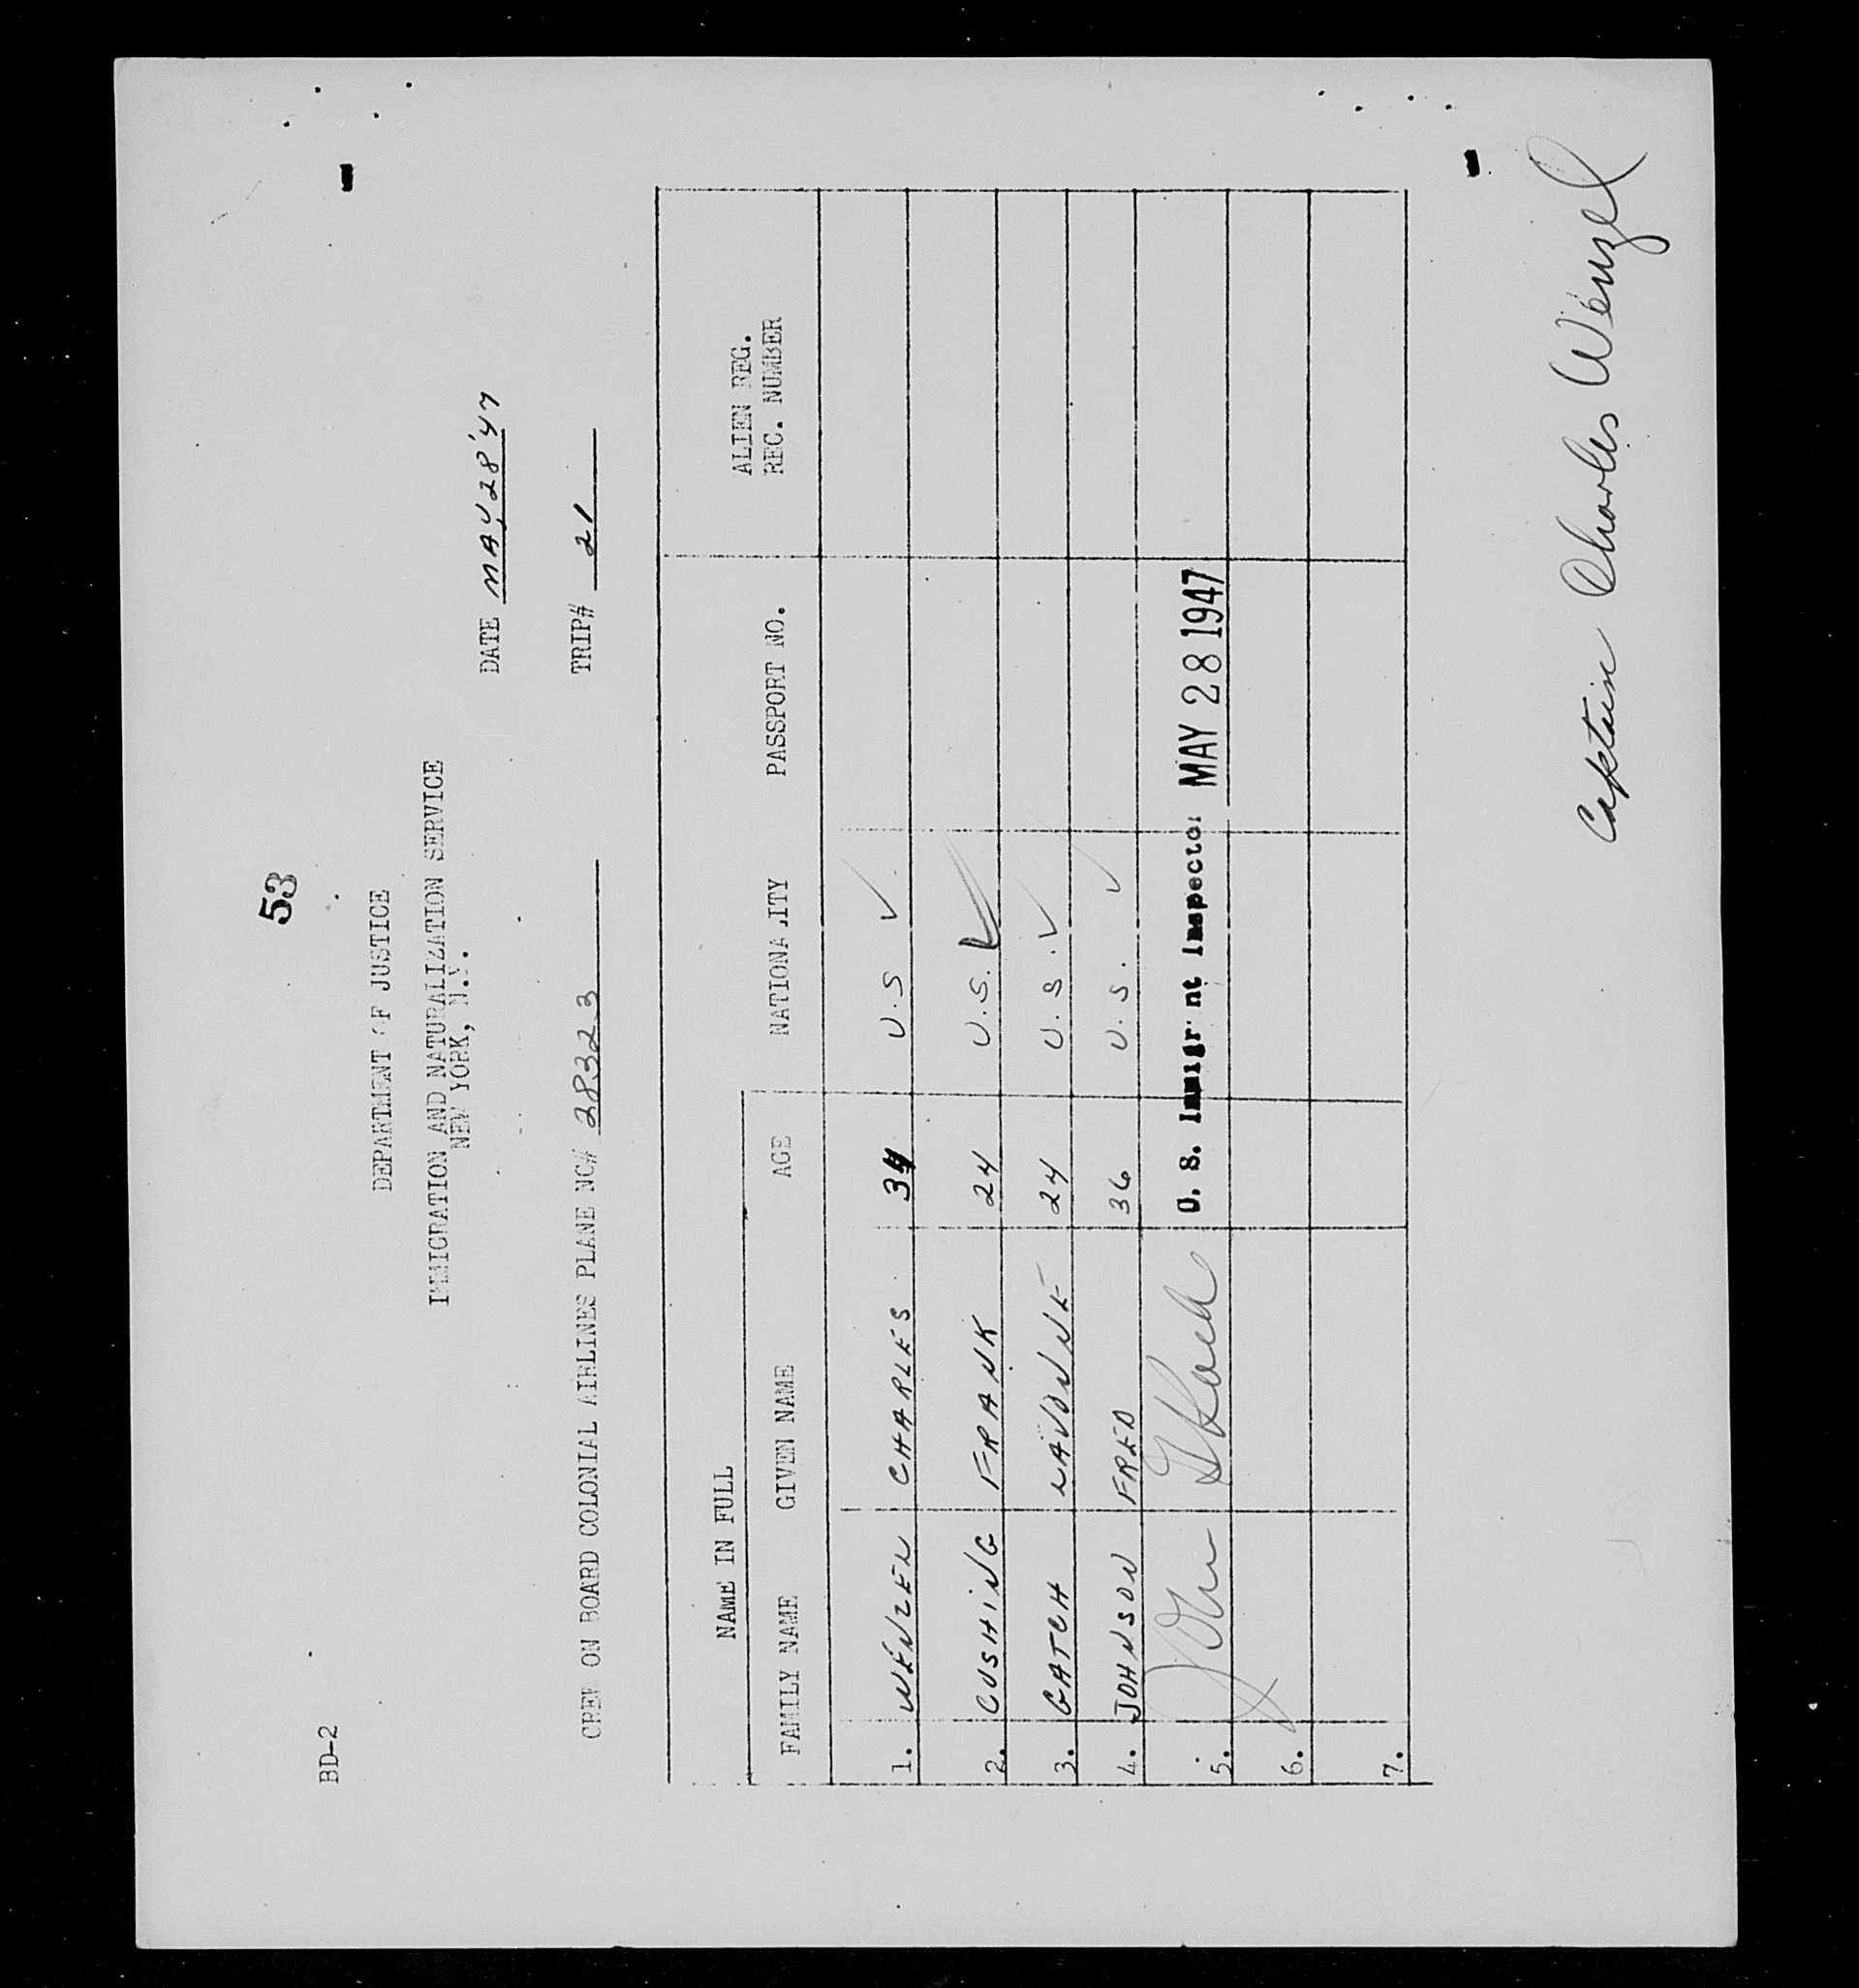 53
BD-2
DEPARTMENT OF JUSTICE
IMMIGRATION AND NATURALIZATION SERVICE
NEW YORK, N.Y.
DATE MAY, 28 '47
CREW ON BOARD COLONIAL AIRLINES PLANE NC# 28323 TRIP# 21
NAME IN FULL
FAMILY NAME GIVEN NAME AGE NATIONALITY PASSPORT NO. ALIEN REG. REC. NUMBER
1. WENZEL CHARLES 34 U.S ✓
2. CUSHING FRANK 24 U.S. ✓
3. GATCH LAVONNE 24 U.S. ✓
4. JOHNSON FRED 36 U.S. ✓
5. John U. S. Immigrant Inspector MAY 28 1947
6.
7.
Captain Charles Wenzel